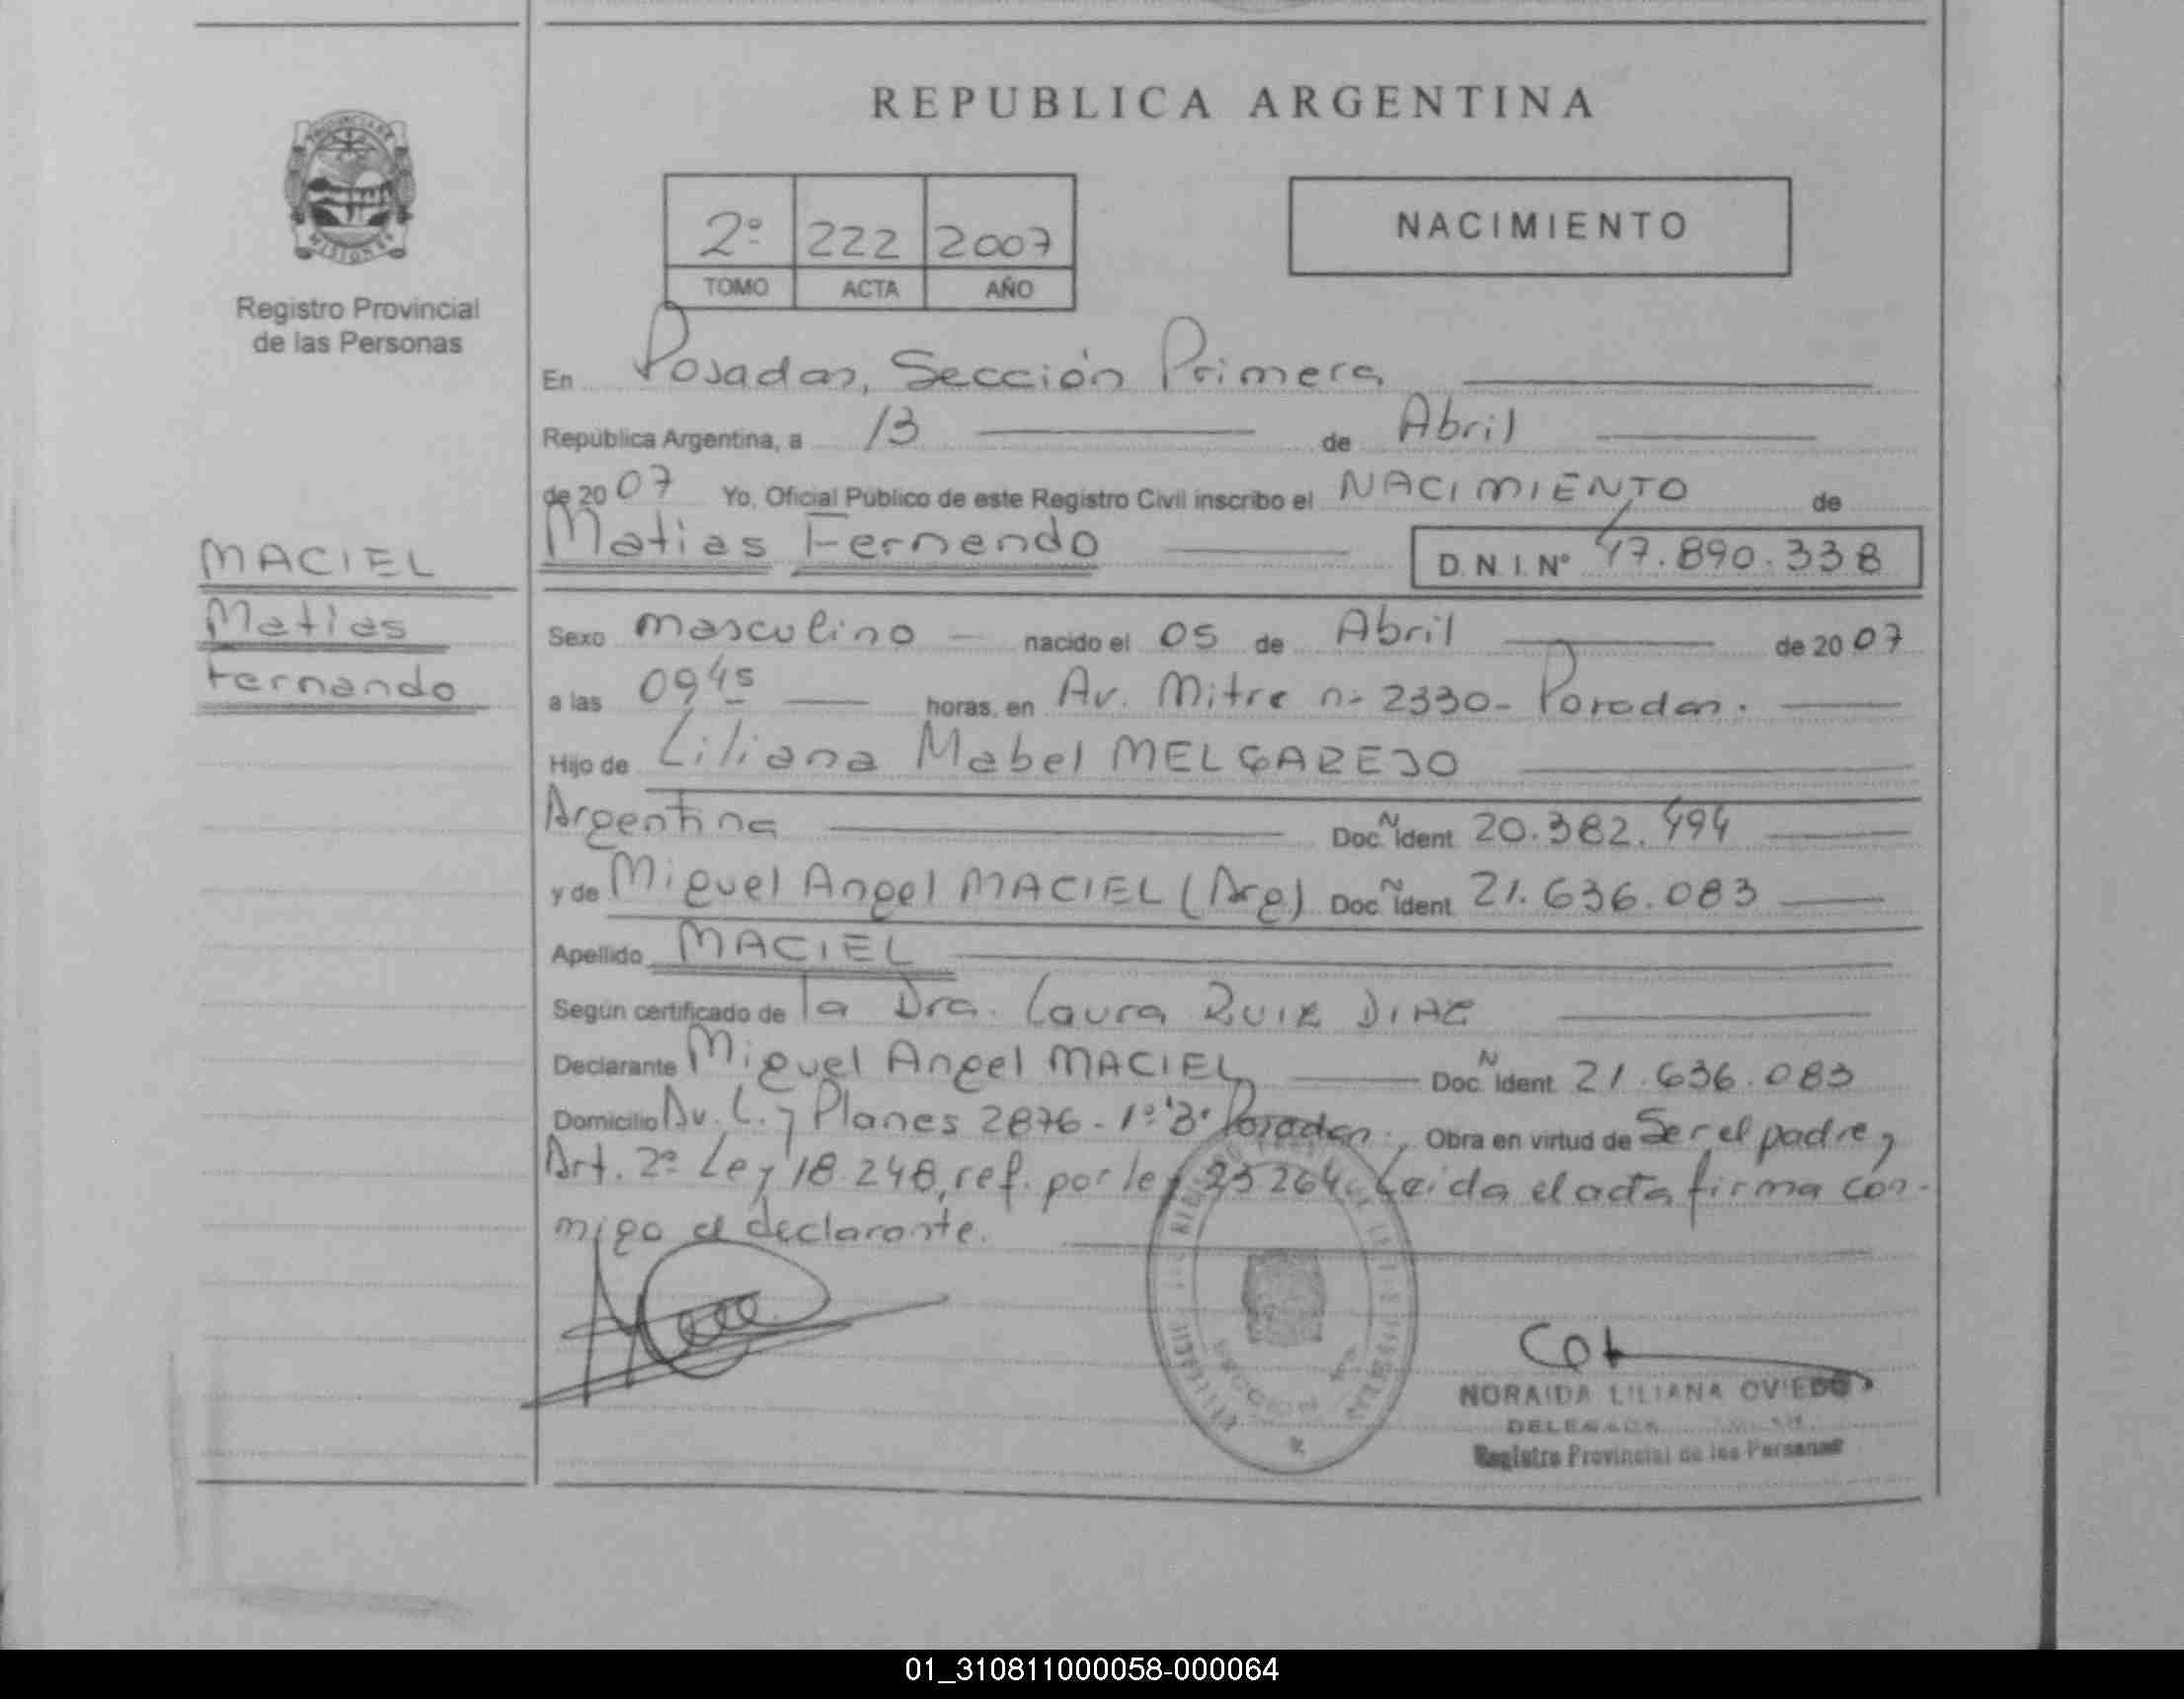 REPUBLICA ARGENTINA
2º 222 2007
TOMO ACTA AÑO
NACIMIENTO
PROVINCIA DE
MISIONES
Registro Provincial
de las Personas
MACIEL
Matias
Fernando
En Posadas, Sección Primera
República Argentina, a 13 de Abril
de 2007 Yo, Oficial Público de este Registro Civil inscribo el NACIMIENTO de
Matias Fernando D.N.I. Nº 47.890.338
Sexo masculino nacido el 05 de Abril de 2007
a las 0945 horas, en Av. Mitre nº 2330- Posadas.
Hijo de Liliana Mabel MELGAREJO
Argentina Doc. N Ident 20.382.494
y de Miguel Angel MACIEL (Arg) Doc. N Ident 21.636.083
Apellido MACIEL
Según certificado de la Dra. Laura RUIZ DIAZ
Declarante Miguel Angel MACIEL Doc. N Ident 21.636.083
Domicilio Av. L. y Planes 2876-1º"B" Posadas, Obra en virtud de Ser el padre y
Art. 2º Ley 18.248, ref. por ley 23264. Leida el acta firma con-
migo el declarante.
SECCION
NORAIDA LILIANA OVIEDO
DELEGADA
Registro Provincial de las Personas
01_310811000058-000064